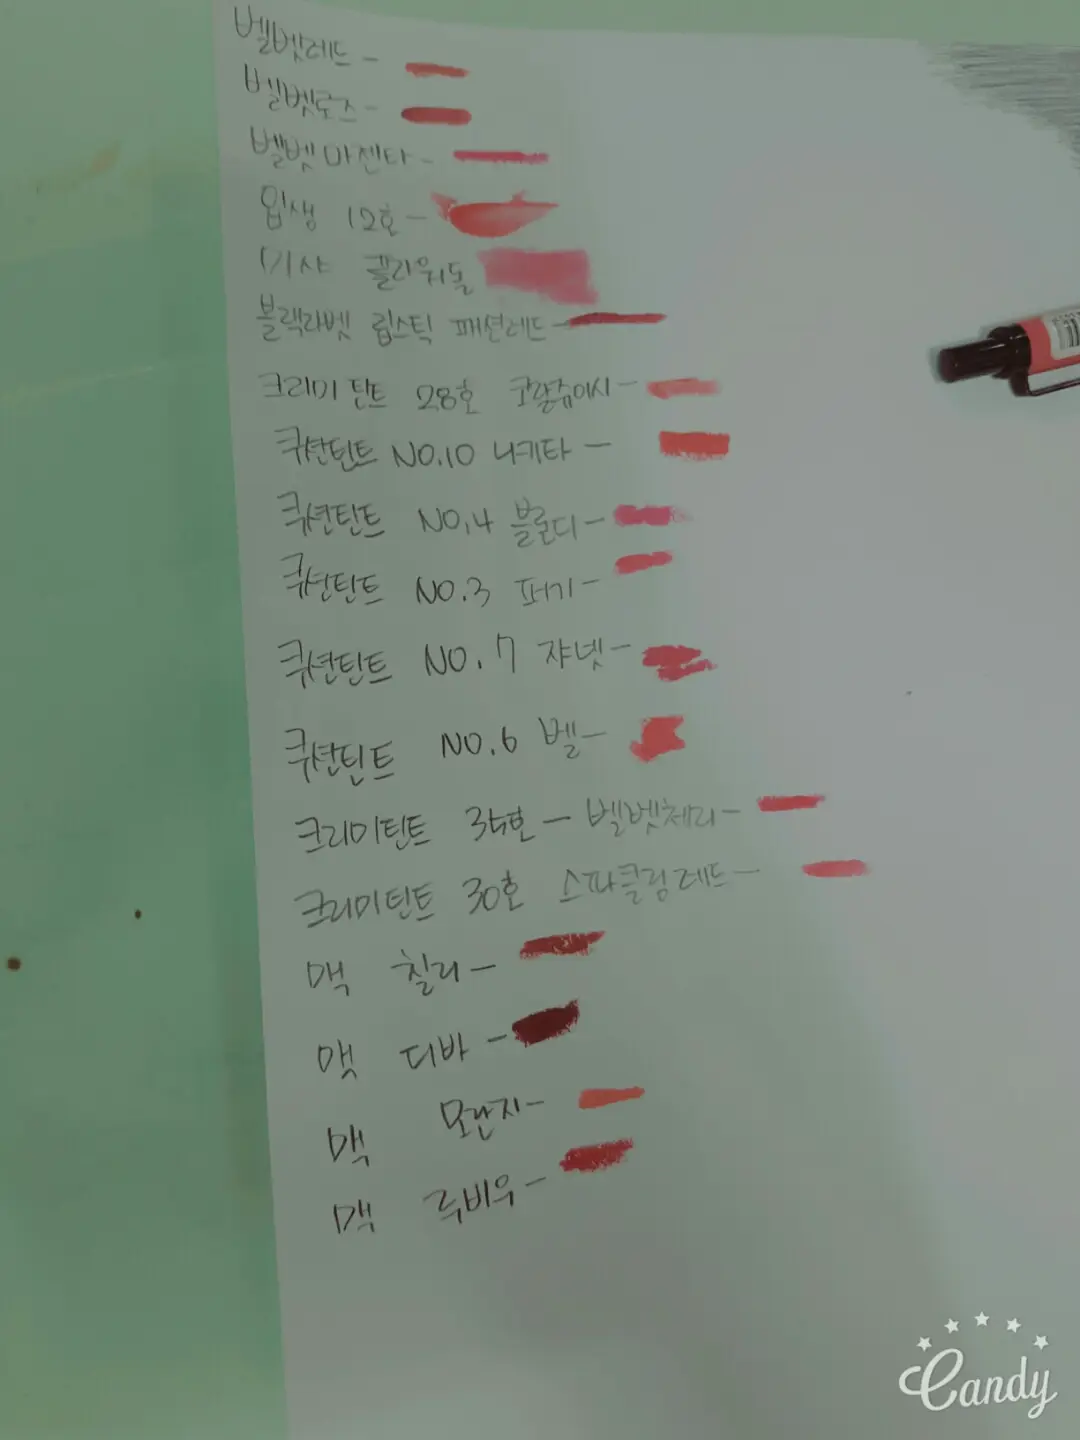 벨벳레드 -
벨벳로즈 -
벨벳 마젠타 -
입생 12호 -
미샤 플라워돌
블랙라벳 립스틱 패션레드 -
크리미 틴트 28호 코랄쥬이시 -
쿠션틴트 NO.10 니키타 -
쿠션틴트 NO.4 블론디 -
쿠션틴트 NO.3 퍼기 -
쿠션틴트 NO.7 쟈넷 -
쿠션틴트 NO.6 벨 -
크리미틴트 35호 - 벨벳체리 -
크리미틴트 30호 스파클링레드 -
맥 칠리 -
맥 디바 -
맥 모란지 -
맥 루비우 -
Candy